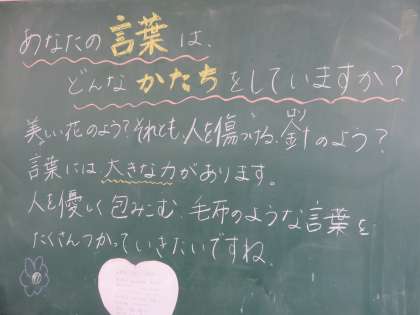 あなたの言葉は、
どんなかたちをしていますか?
美しい花のよう?それとも、人を傷つける、針のよう?
言葉には、大きな力があります。
人を優しく包みこむ、毛布のような言葉を
たくさんつかっていきたいですね。